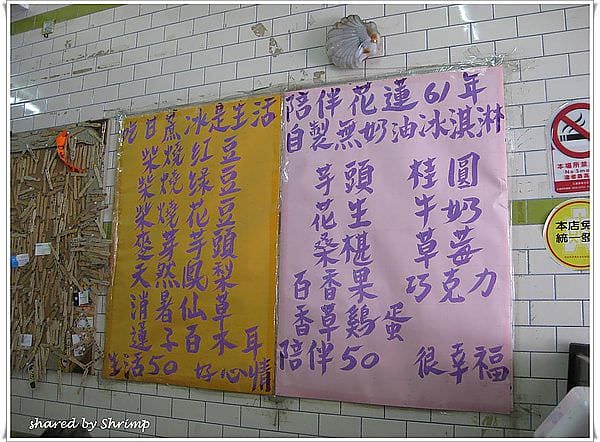 吃甘蔗冰是生活
柴燒紅豆
柴燒綠豆
柴燒花豆
麥芽芋頭
天然鳳梨
消暑仙草
蓮子百木耳
生活50 好心情
陪伴花蓮61年
自製無奶油冰淇淋
芋頭 桂圓
花生 牛奶
桑椹 草莓
百香果 巧克力
香草雞蛋
陪伴50 很幸福
本場所禁
No Smo
本店免
統一發
shared by Shrimp